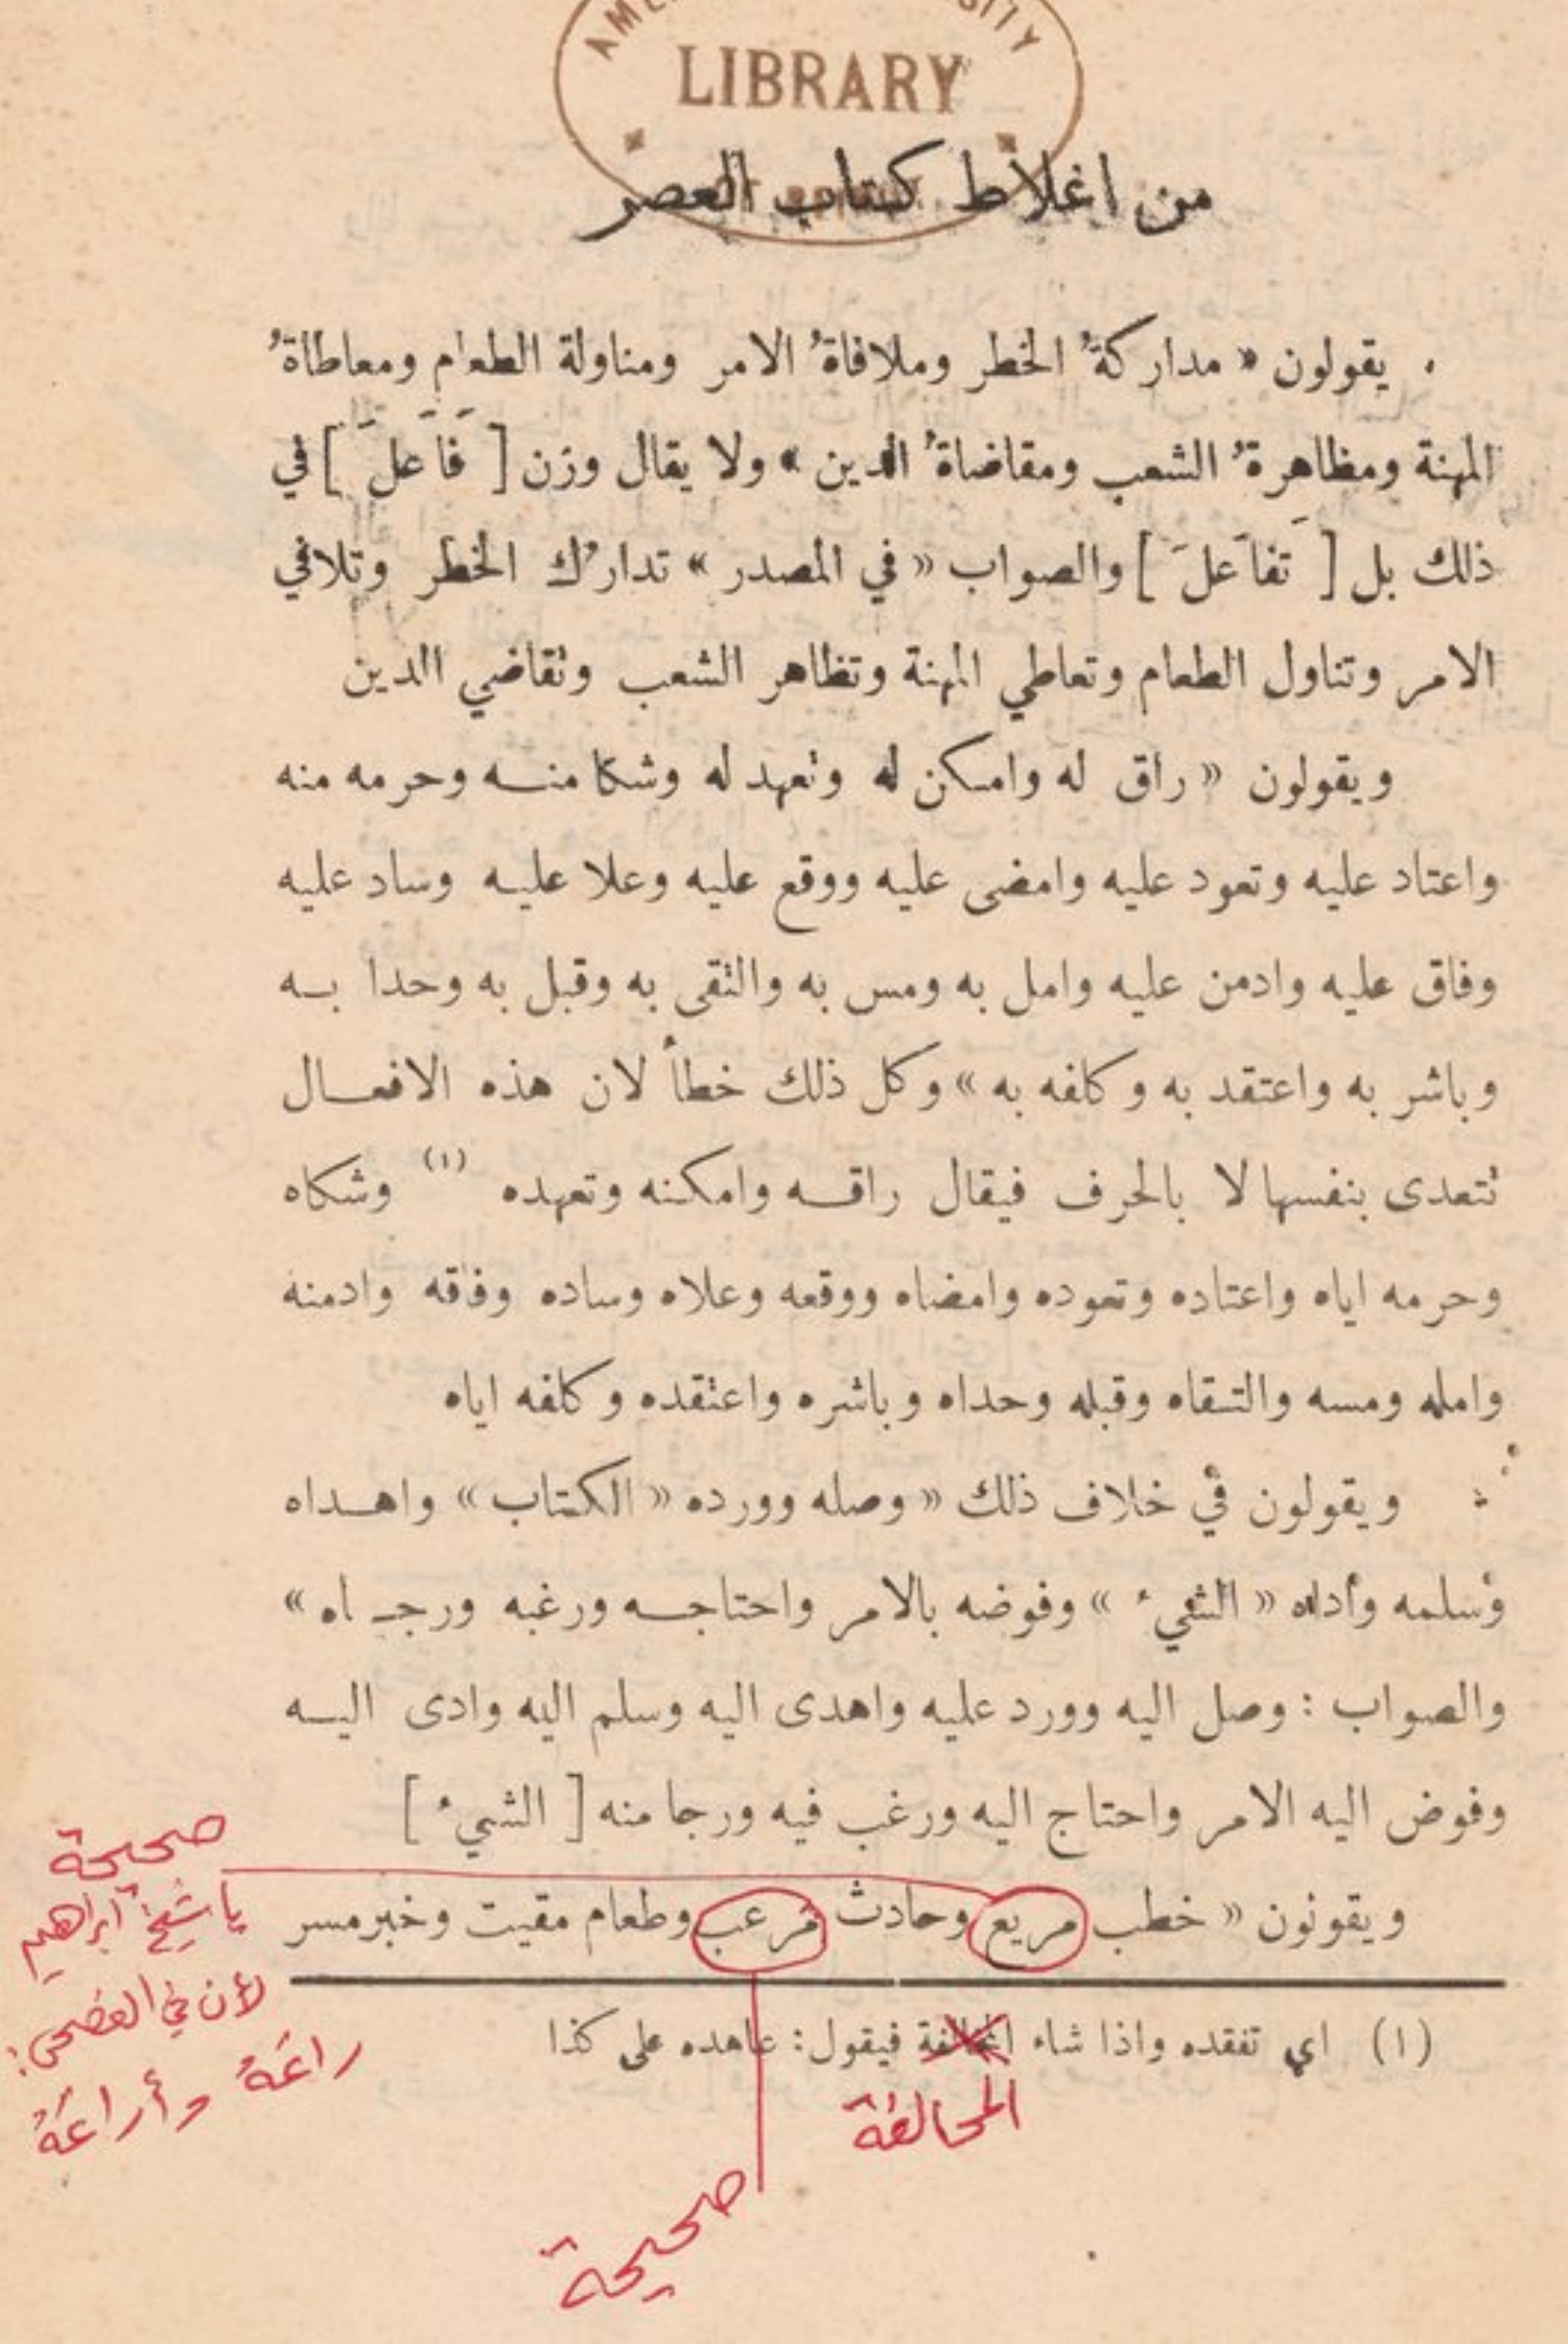 LIBRARY
من اغلاط كتاب العصر
. يقولون « مداركةُ الخطر وملافاةُ الامر ومناولة الطعام ومعاطاةُ
المهنة ومظاهرةُ الشعب ومقاضاةُ الدين » ولا يقال وزن [ فَاَعلَ ] في
ذلك بل [ تَفاَعلَ ] والصواب « في المصدر » تدارُك الخطر وتلافي
الامر وتناول الطعام وتعاطي المهنة وتظاهر الشعب وتقاضي الدين
ويقولون « راق له وامكن له وتعهد له وشكا منه وحرمه منه
واعتاد عليه وتعود عليه وامضى عليه ووقع عليه وعلا عليه وساد عليه
وفاق عليه وادمن عليه وامل به ومس به والتقى به وقبل به وحدا به
وباشر به واعتقد به وكلفه به » وكل ذلك خطأ لان هذه الافعال
تتعدى بنفسها لا بالحرف فيقال راقه وامكنه وتعهده (١) وشكاه
وحرمه اياه واعتاده وتعوده وامضاه ووقعه وعلاه وساده وفاقه وادمنه
وامله ومسه والتقاه وقبله وحداه وباشره واعتقده وكلفه اياه
ويقولون في خلاف ذلك « وصله وورده « الكتاب » واهداه
وسلمه وأداه « الشيء » وفوضه بالامر واحتاجه ورغبه ورجاه »
والصواب : وصل اليه وورد عليه واهدى اليه وسلم اليه وادى اليه
وفوض اليه الامر واحتاج اليه ورغب فيه ورجا منه [ الشيء ]
ويقونون « خطب مريع وحادث مُرعب وطعام مقيت وخبر مسر
صحيحة
يا شيخ ابراهيم
لأن في الفصحى:
راعَهُ وأراعَهُ
(١) اي تفقده واذا شاء المخالفة فيقول: عاهده على كذا
المحالفة
صحيحة